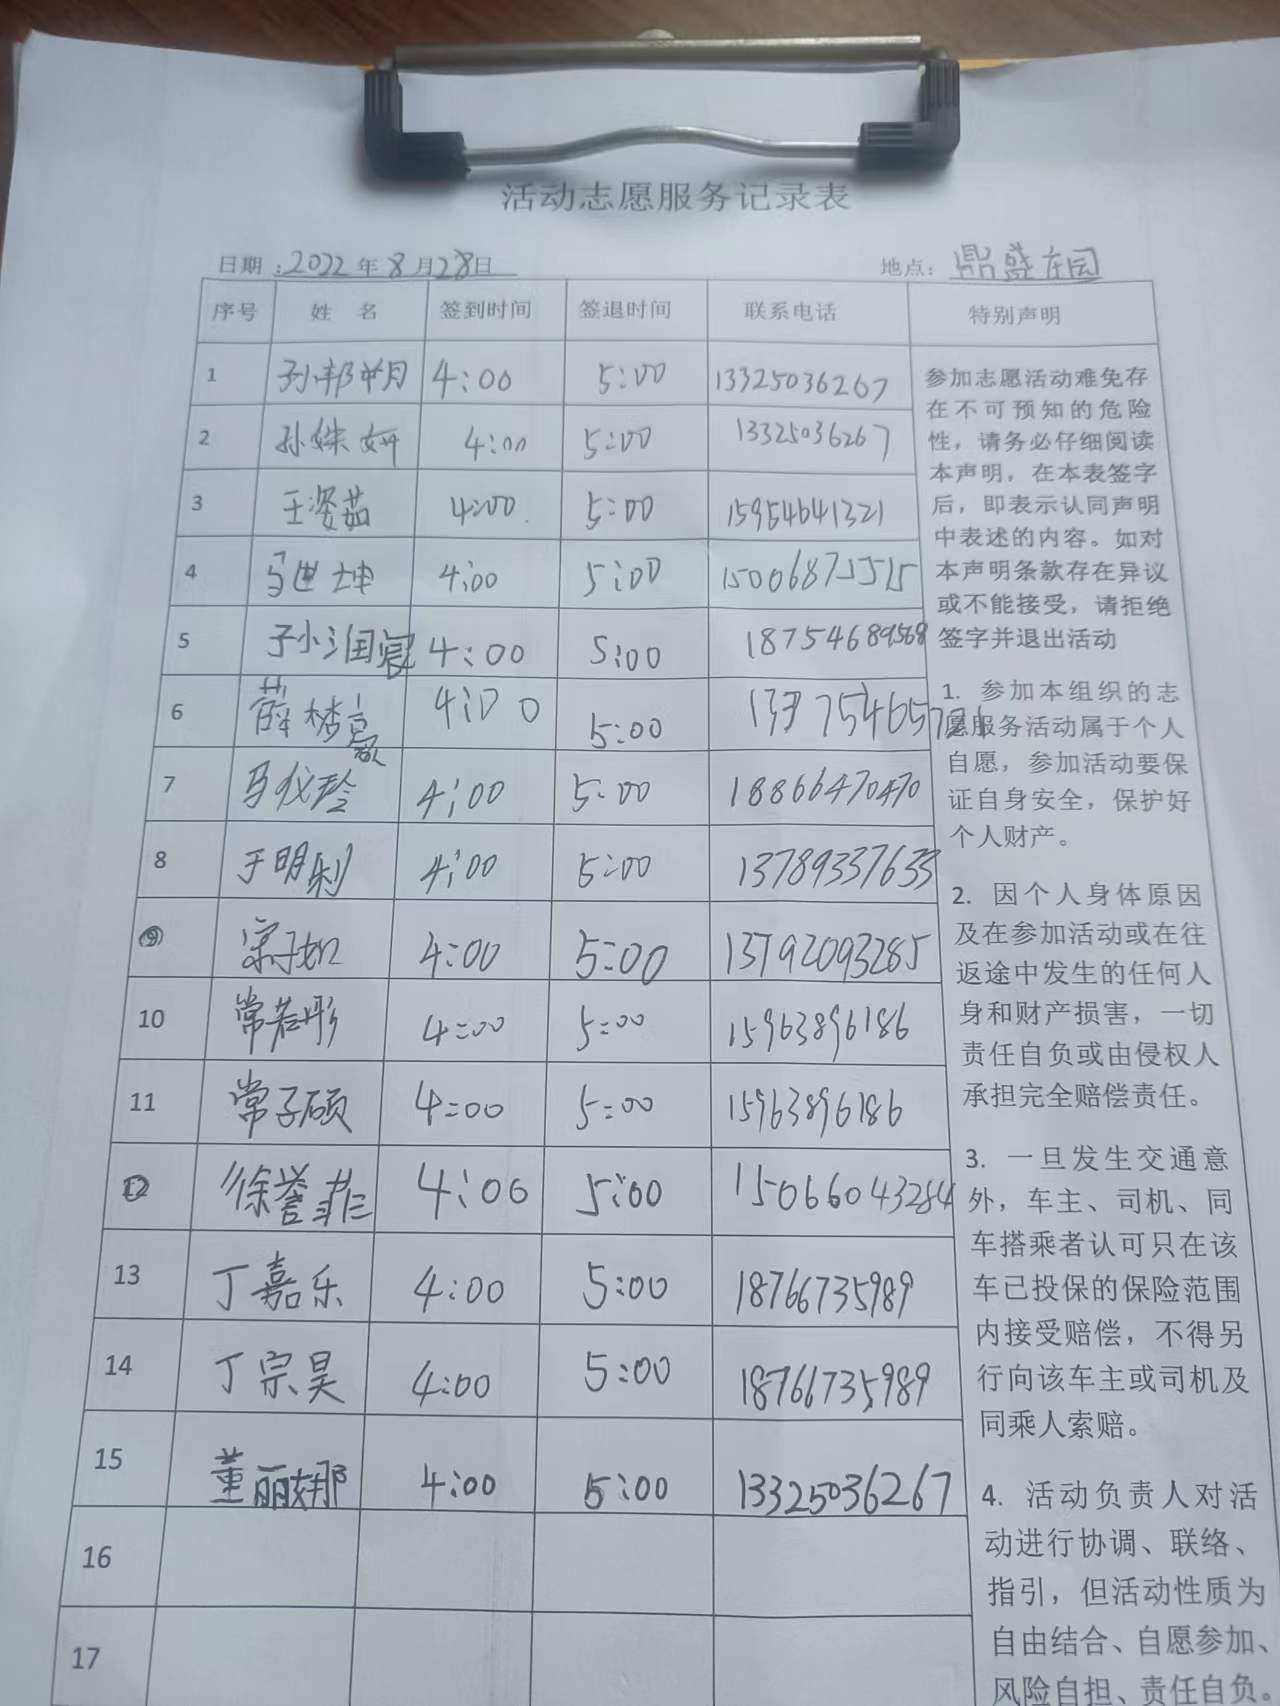 活动志愿服务记录表
日期:2022年8月28日 地点:鼎盛在园
序号 姓 名 签到时间 签退时间 联系电话 特别声明
1 孙邦明 4:00 5:00 13325036267
2 孙姝妍 4:00 5:00 13325036267
3 王姿茹 4:00 5:00 15954641321
4 马世坤 4:00 5:00
5 孙润宸 4:00 5:00 18754689568
6 薛梦 4:00 5:00
7 马仪玲 4:00 5:00 18866470470
8 于明利 4:00 5:00 13789337633
9 宋子如 4:00 5:00 13792093285
10 常若彤 4:00 5:00 15963896186
11 常子硕 4:00 5:00 15963896186
12 徐誉菲 4:00 5:00 15066043284
13 丁嘉乐 4:00 5:00 18766735989
14 丁宗昊 4:00 5:00 18766735989
15 董丽娜 4:00 5:00 13325036267
16
17
参加志愿活动难免存
在不可预知的危险
性，请务必仔细阅读
本声明，在本表签字
后，即表示认同声明
中表述的内容。如对
本声明条款存在异议
或不能接受，请拒绝
签字并退出活动
1. 参加本组织的志
愿服务活动属于个人
自愿，参加活动要保
证自身安全，保护好
个人财产。
2. 因个人身体原因
及在参加活动或在往
返途中发生的任何人
身和财产损害，一切
责任自负或由侵权人
承担完全赔偿责任。
3. 一旦发生交通意
外，车主、司机、同
车搭乘者认可只在该
车已投保的保险范围
内接受赔偿，不得另
行向该车主或司机及
同乘人索赔。
4. 活动负责人对活
动进行协调、联络、
指引，但活动性质为
自由结合、自愿参加、
风险自担、责任自负。